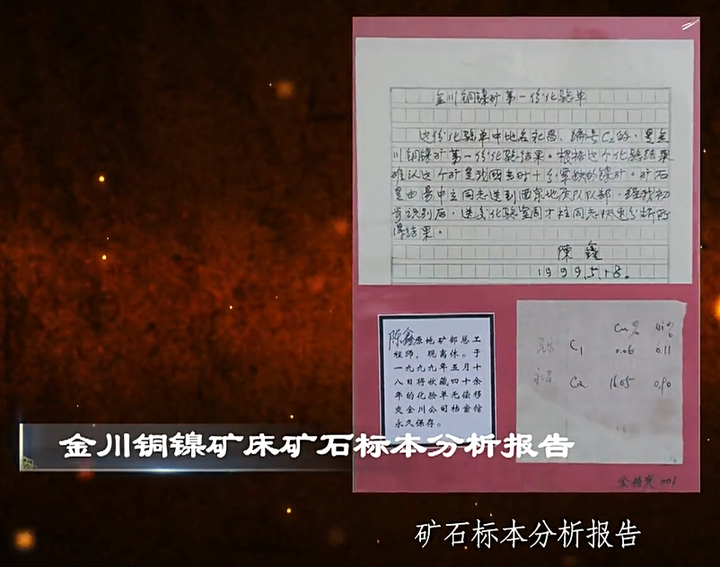 金川铜镍矿第一份化验单
这份化验单中地名永昌、编号C2的，是金
川铜镍矿第一份化验结果。根据这个化验结果
确认这个矿是我国当时十分紧缺的镍矿。矿石
是由景中立同志送到西宗地质队队部，经我初
步识别后，送给化验室周才柱同志快速分析所
得结果。
陈鑫
1999.5.18.
陈鑫原地矿部总工
程师，现离休。于
一九九九年五月十
八日将收藏四十余
年的化验单无偿移
交金川公司档案馆
永久保存。
Cu% Ni%
C1 0.06 0.11
永昌 C2 16.05 0.90
001
金川铜镍矿床矿石标本分析报告
矿石标本分析报告